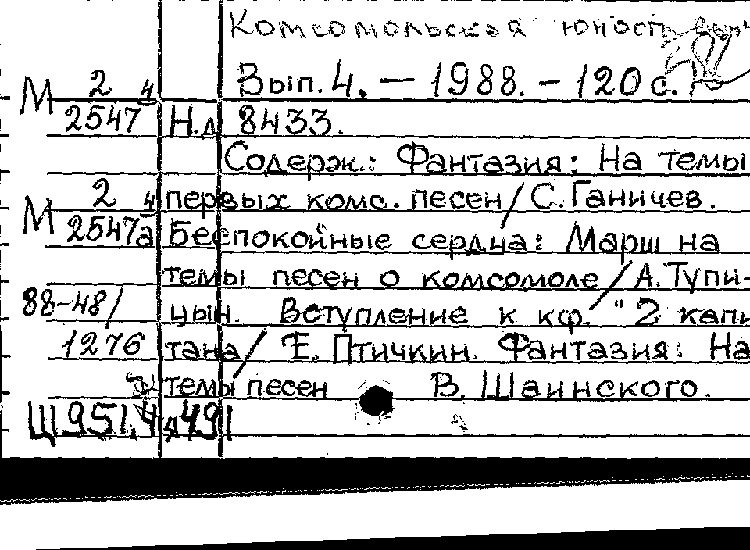 Комсомольская юность
Вып. 4. — 1988. — 120 с.
М 2 4
2547 Н.д 8433.
Содерж.: Фантазия: На темы
М 2 4 первых комс. песен/С.Ганичев.
2547а Беспокойные сердца: Марш на
темы песен о комсомоле/А.Тупи-
88-48/ цын. Вступление к кф. "2 капи
1276 тана/Е. Птичкин. Фантазия: На
темы песен В. Шаинского.
Щ951.4я491